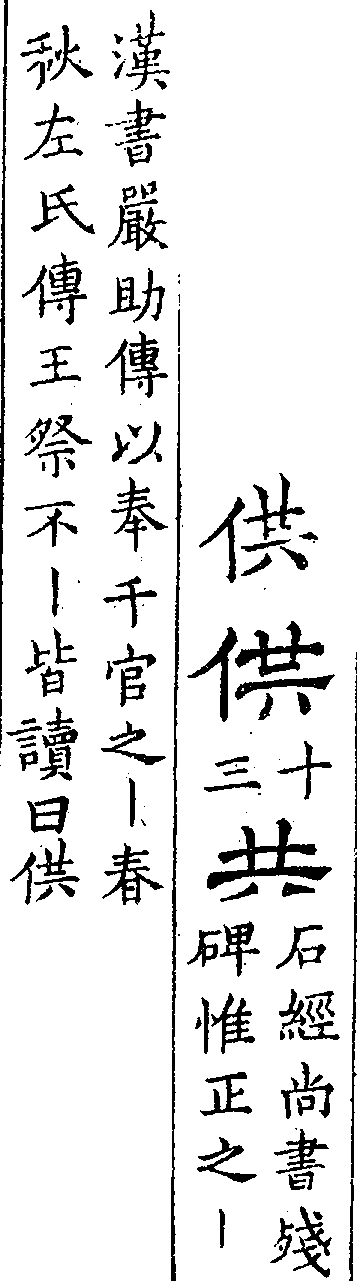 供
供
十
三
共
石經尚書殘
碑惟正之丨
漢書嚴助傳以奉千官之丨春
秋左氏傳王祭不丨皆讀曰供